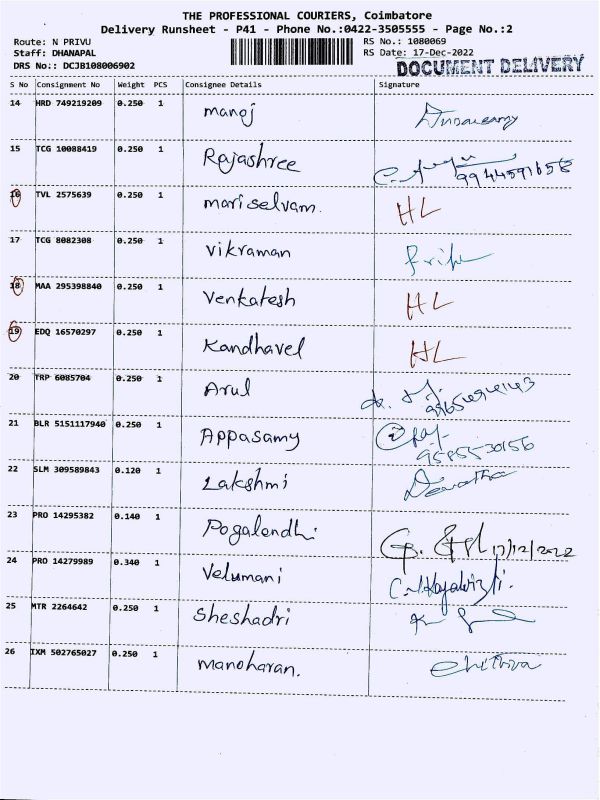 THE PROFESSIONAL COURIERS, Coimbatore
Delivery Runsheet - P41 - Phone No.:0422-3505555 - Page No.:2
Route: N PRIVU RS No.: 1080069
Staff: DHANAPAL RS Date: 17-Dec-2022
DRS No.: DCJB108006902 DOCUMENT DELIVERY
S No Consignment No Weight PCS Consignee Details Signature
14 HRD 749219209 0.250 1 manoj
15 TCG 10088419 0.250 1 Rajashree 9944591658
16 TVL 2575639 0.250 1 mariselvam. HL
17 TCG 8082308 0.250 1 vikraman
18 MAA 295398840 0.250 1 Venkatesh HL
19 EDQ 16570297 0.250 1 Kandhavel HL
20 TRP 6085704 0.250 1 Arul
21 BLR 5151117940 0.250 1 Appasamy 9585530156
22 SLM 309589843 0.120 1 Lakshmi
23 PRO 14295382 0.140 1 Pogalendhi 17/12/2022
24 PRO 14279989 0.340 1 Velumani
25 MTR 2264642 0.250 1 Sheshadri
26 IXM 502765027 0.250 1 manoharan. Chithra